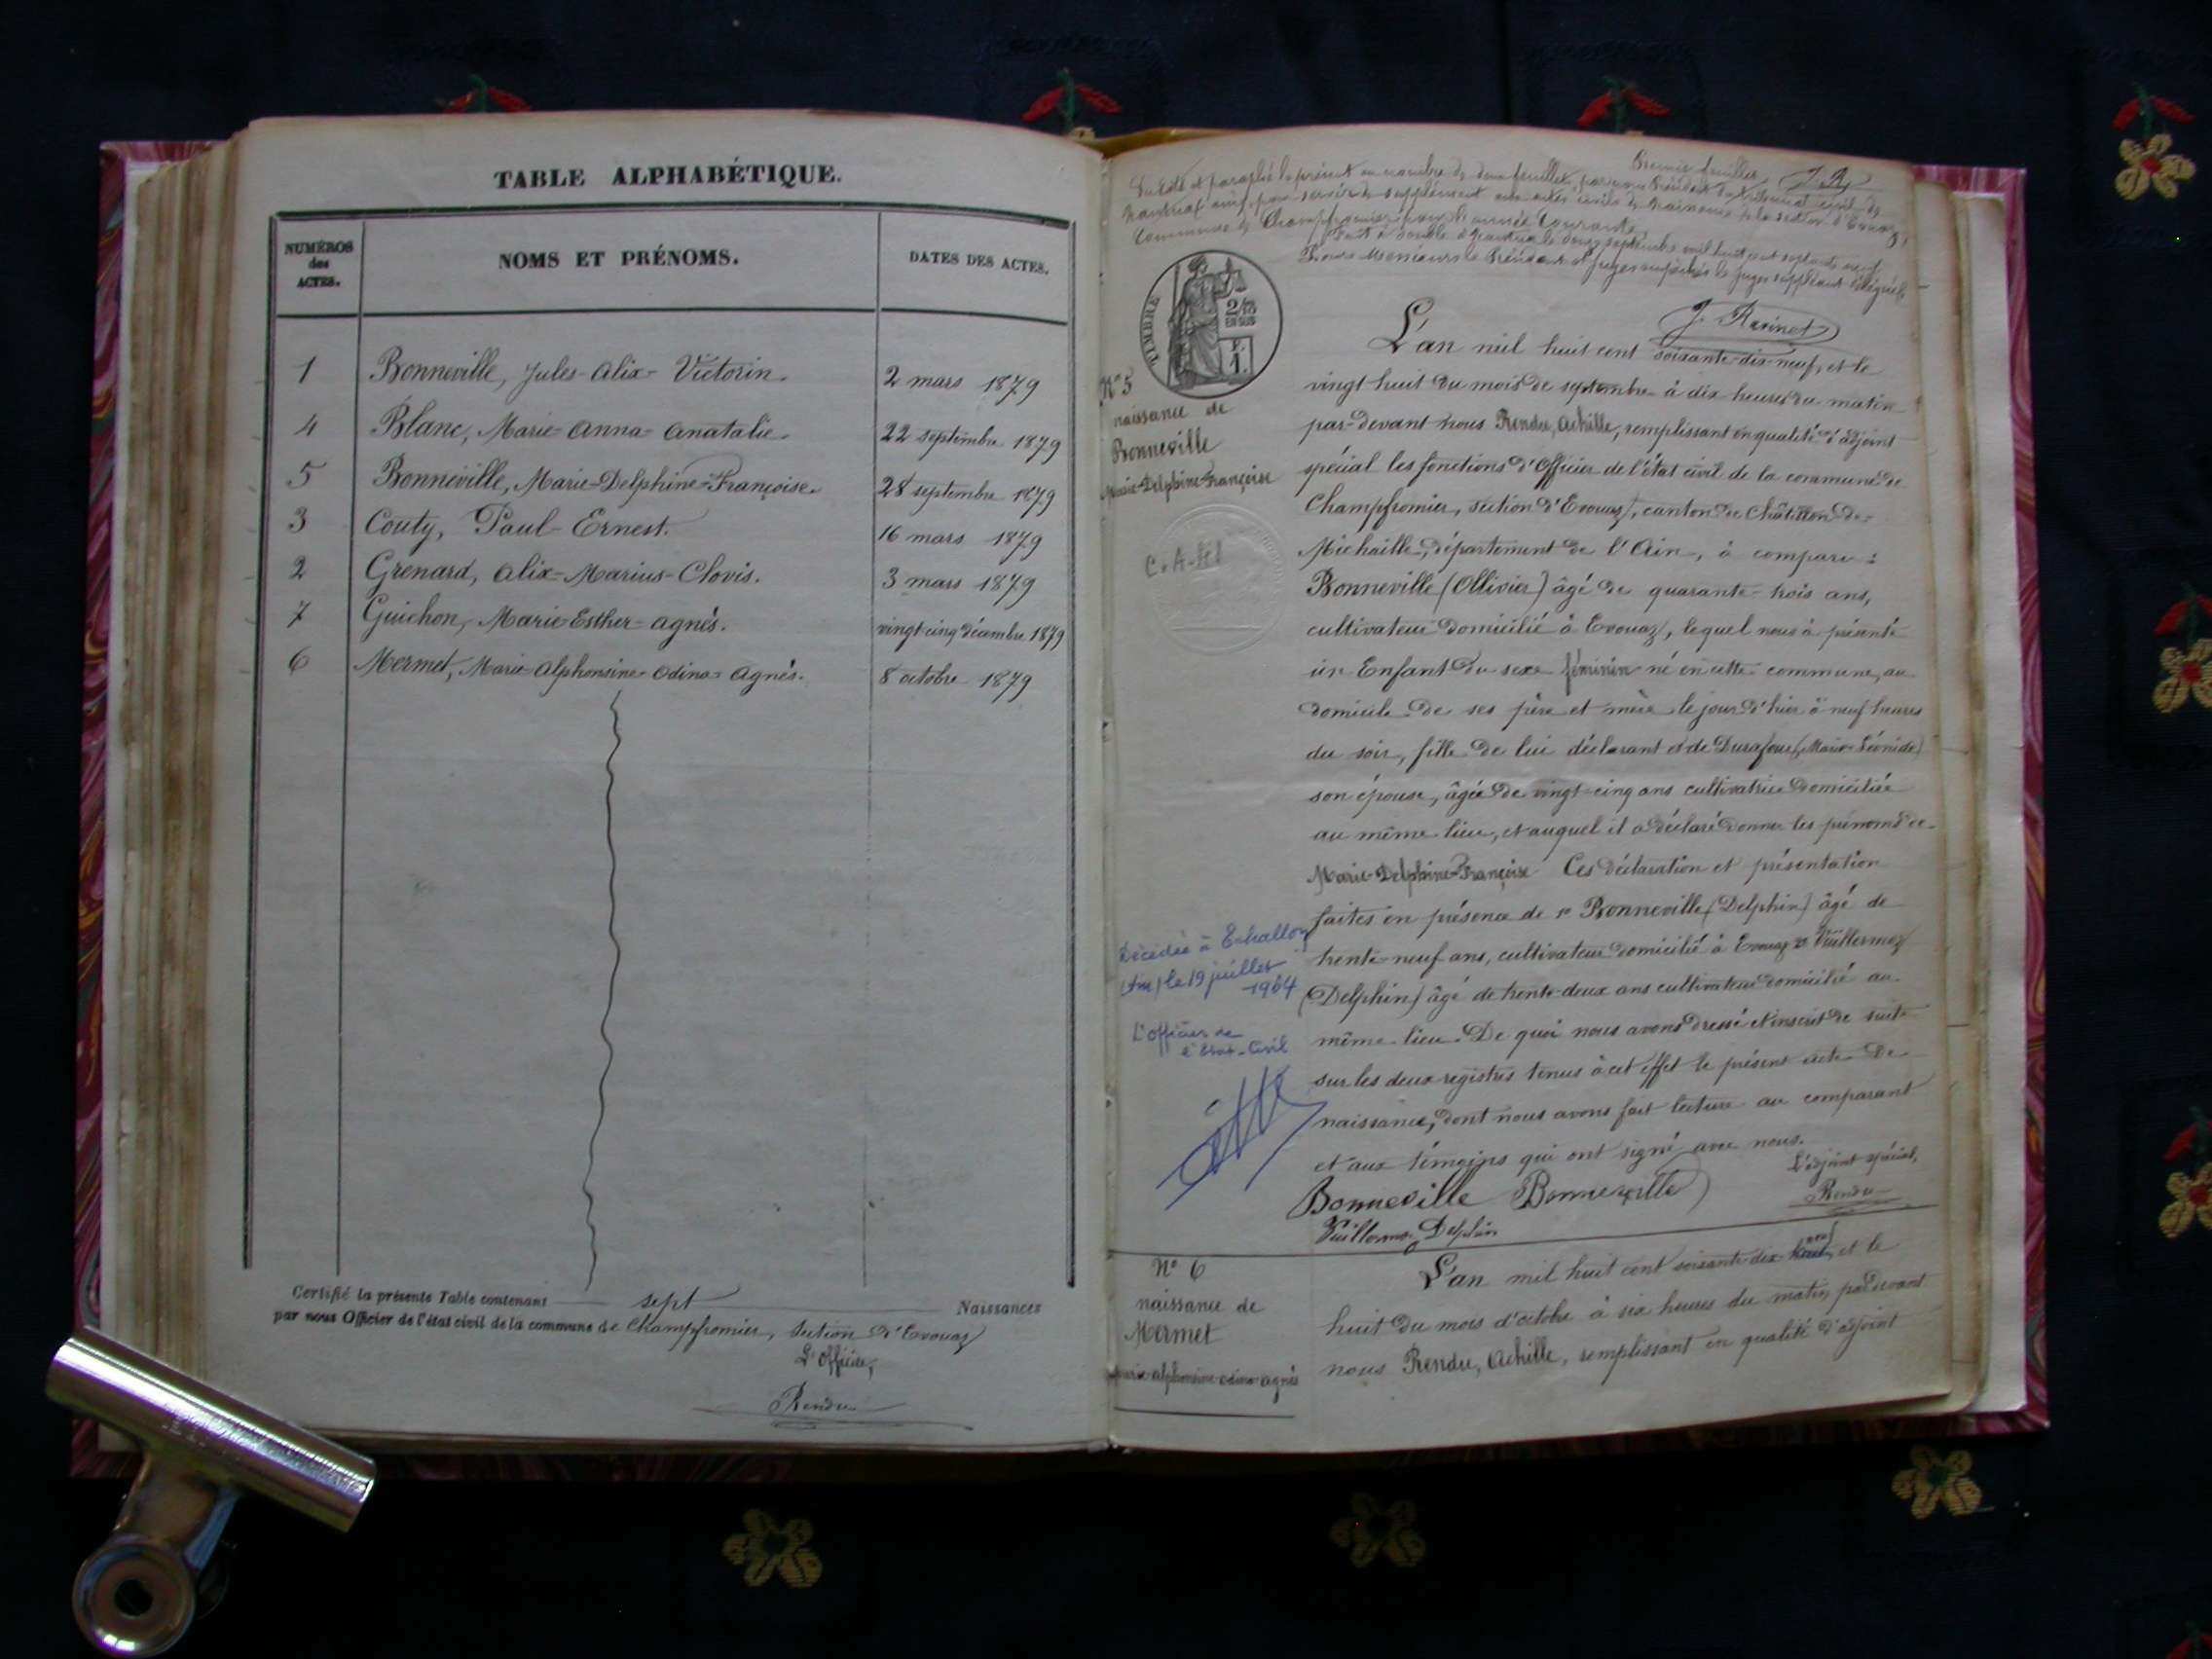 TABLE ALPHABÉTIQUE.
NUMÉROS des ACTES.
NOMS ET PRÉNOMS.
DATES DES ACTES.
1 Bonneville, Jules-Alix-Victorin. 2 mars 1879
4 Blanc, Marie-Anna-Anatalie. 22 septembre 1879
5 Bonneville, Marie-Delphine-Françoise. 28 septembre 1879
3 Couty, Paul-Ernest. 16 mars 1879
2 Grenard, Alix-Marius-Clovis. 3 mars 1879
7 Guichon, Marie Esther-Agnès. vingt-cinq décembre 1879
6 Mermet, Marie-Alphonsine-Odina-Agnès. 8 octobre 1879
Certifié la présente Table contenant sept Naissances
par nous Officier de l'état civil de la commune de Champfromier, section d'Evouaz
L'Officier,
Rendu
Premier feuillet
Commune de Champfromier pour l'année courante
J. Ravinet
TIMBRE
2/10
EN SUS
F.
1.
N° 5
naissance de
Bonneville
Marie-Delphine-Françoise
L'an mil huit cent soixante-dix-neuf, et le
vingt huit du mois de septembre à dix heures du matin
par-devant nous Rendu, Achille, remplissant en qualité d'adjoint
spécial les fonctions d'Officier de l'état civil de la commune de
Champfromier, section d'Evouaz, canton de Châtillon-de-
Michaille, département de l'Ain, à comparu :
Bonneville (Ollivier) âgé de quarante-trois ans,
cultivateur domicilié à Evouaz, lequel nous à présenté
un Enfant du sexe féminin né en cette commune, au
domicile de ses père et mère le jour d'hier à neuf heures
du soir, fille de lui déclarant et de Durafour (Marie-Léonide)
son épouse, âgée de vingt-cinq ans cultivatrice domiciliée
au même lieu, et auquel il a déclaré donner les prénoms de
Marie-Delphine-Françoise. Ces déclaration et présentation
faites en présence de 1° Bonneville (Delphin) âgé de
trente-neuf ans, cultivateur domicilié à Evouaz 2° Vuillermoz
(Delphin) âgé de trente-deux ans cultivateur domicilié au
même lieu. De quoi nous avons dressé et inscrit de suite
sur les deux registres tenus à cet effet le présent acte de
naissance, dont nous avons fait lecture au comparant
et aux témoins qui ont signé avec nous.
L'adjoint spécial,
Bonneville Bonneville Rendu
Vuillermoz Delphin
Décédée à Echallon
(Ain) le 19 juillet
1964
L'officier de
l'Etat-Civil
N° 6
naissance de
Mermet
Marie-Alphonsine-Odina-Agnès
L'an mil huit cent soixante-dix neuf, et le
huit du mois d'octobre à six heures du matin, pardevant
nous Rendu, Achille, remplissant en qualité d'adjoint